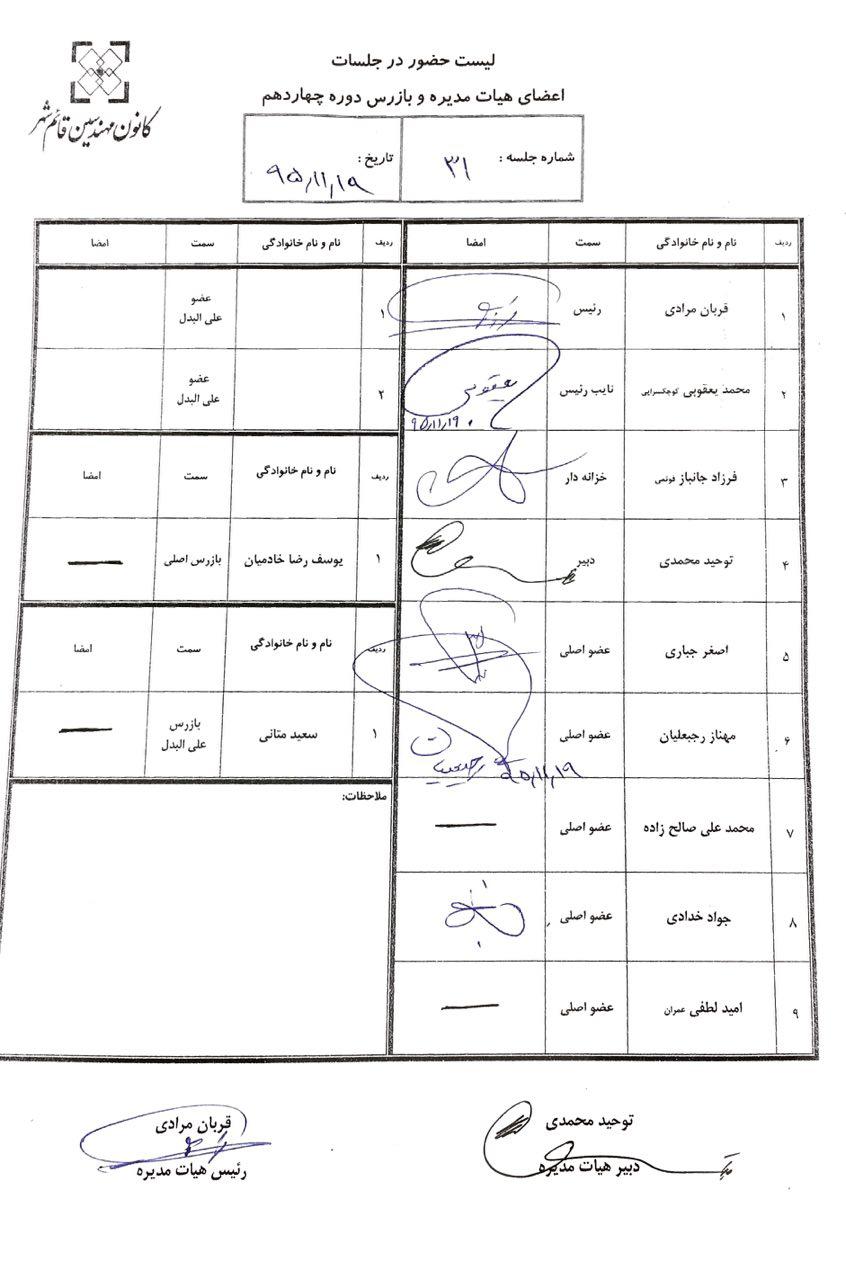 کانون مهندسین قائم شهر
لیست حضور در جلسات
اعضای هیات مدیره و بازرس دوره چهاردهم
شماره جلسه : ۳۱
تاریخ : ۹۵/۱۱/۱۹
ردیف نام و نام خانوادگی سمت امضا
۱ قربان مرادی رئیس
۲ محمد یعقوبی کوچکسرایی نایب رئیس یعقوبی ۹۵/۱۱/۱۹
۳ فرزاد جانباز فوتمی خزانه دار
۴ توحید محمدی دبیر
۵ اصغر جباری عضو اصلی
۶ مهناز رجبعلیان عضو اصلی ۹۵/۱۱/۱۹
۷ محمد علی صالح زاده عضو اصلی —
۸ جواد خدادی عضو اصلی
۹ امید لطفی عمران عضو اصلی —
ردیف نام و نام خانوادگی سمت امضا
۱ عضو
علی البدل
۲ عضو
علی البدل
ردیف نام و نام خانوادگی سمت امضا
۱ یوسف رضا خادمیان بازرس اصلی —
ردیف نام و نام خانوادگی سمت امضا
۱ سعید متانی بازرس
علی البدل —
ملاحظات:
توحید محمدی
دبیر هیات مدیره
قربان مرادی
رئیس هیات مدیره